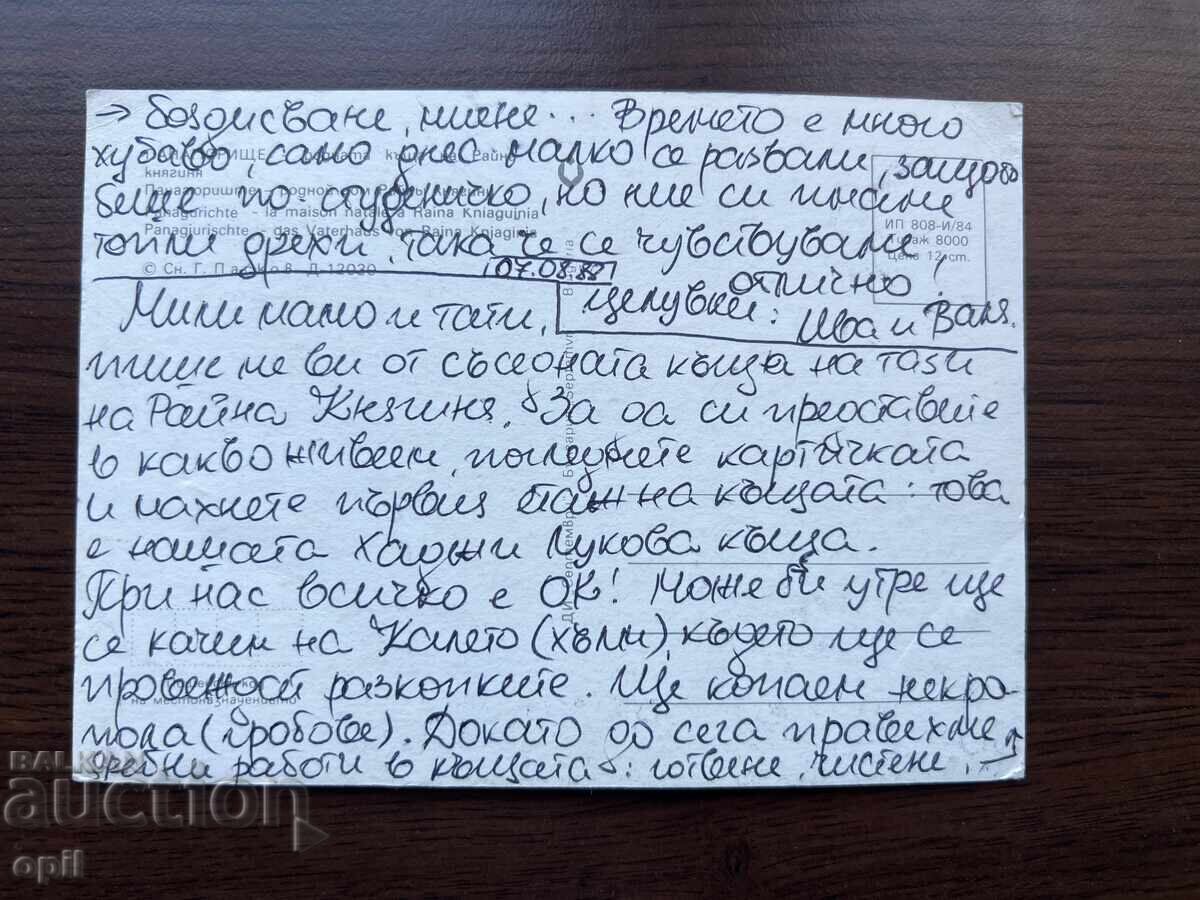 → боядисване, миене... Времето е много
хубаво, само днес малко се развали, защото
беше по-студеничко, но ние си имаме
топли дрехи, така че се чувствуваме
отлично!
07.08.88
Целувки: Ива и Ваня.
Мили мамо и тати,
пишеме ви от съседната къща на тази
на Райна Княгиня. За да си представите
в какво живеем, погледнете картичката
и махнете първия етаж на къщата: това
е нашата Хаджи Лукова къща.
При нас всичко е ОК! Може би утре ще
се качим на Калето (хълм), където ще се
провеждат разкопките. Ще копаем некро-
пола (гробове). Докато до сега правехме
дребни работи в къщата: готвене, чистене, →
княгиня
Panagurichte - la maison natale Raina Kniaguinia
Panagjurischte - das Vaterhaus von Raina Knjaginja
© Сн. Г. Д-12030
ИП 808-И/84
Тираж 8000
Цена 12 ст.
на местоназначението
BALKAN
auction
opil